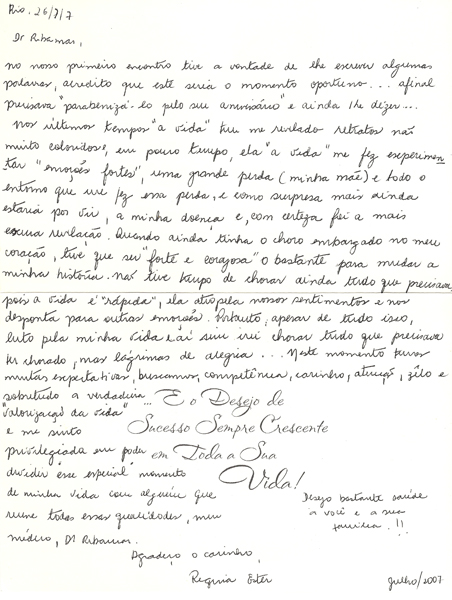 Rio, 26/7/7
Dr Ribamar,
no nosso primeiro encontro tive a vontade de lhe escrever algumas
palavras, acredito que este seria o momento oportuno... afinal
precisava "parabenizá-lo pelo seu aniversário" e ainda lhe dizer...
Nos últimos tempos "a vida" tem me revelado retratos não
muito coloridos e, em pouco tempo, ela "a vida" me fez experimen
tar "emoções fortes", uma grande perda (minha mãe) e todo o
entorno que me fez essa perda, e como surpresa mais ainda
estaria por vir, a minha doença e, com certeza foi a mais
escura revelação. Quando ainda tinha o choro embargado no meu
coração, tive que ser "forte e corajosa" o bastante para mudar a
minha história. Não tive tempo de chorar ainda tudo que precisava,
pois a vida é "rápida", ela atropela nossos sentimentos e nos
desponta para outras emoções. Portanto, apesar de tudo isso,
luto pela minha vida e aí sim irei chorar tudo que precisava
ter chorado, mas lágrimas de alegria... Neste momento temos
muitas expectativas, buscamos, competência, carinho, atenção, zêlo e
sobretudo a verdadeira...
"valorização da vida"
e me sinto
privilegiada em poder
dividir esse "especial" momento
de minha vida com alguém que
reune todas essas qualidades, meu
médico, Dr Ribamar.
E o Desejo de
Sucesso Sempre Crescente
em Toda a Sua
Vida!
Desejo bastante saúde
a você e a sua
família.!!
Agradeço o carinho,
Regina Ester
Julho/2007